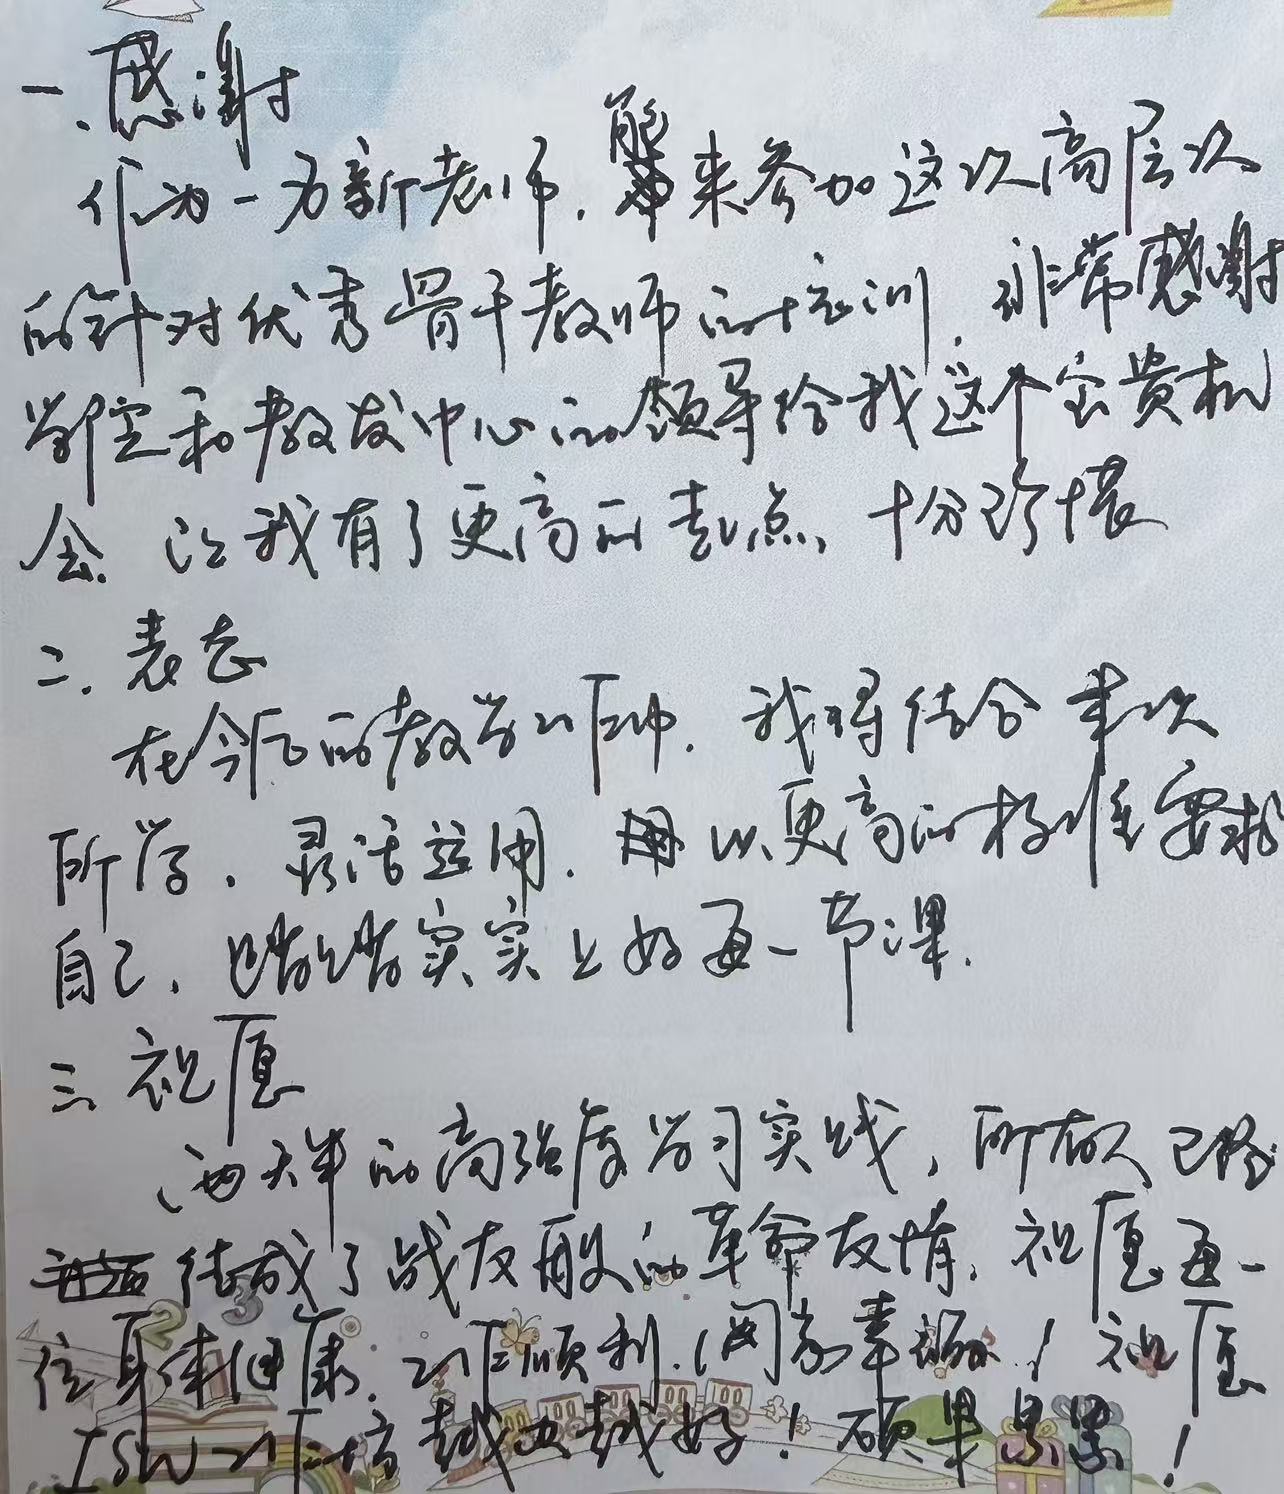 一、感谢
作为一名新老师，能来参加这次高层次
的针对优秀骨干教师的培训，非常感谢
学院和教发中心的领导给我这个宝贵机
会，让我有了更高的起点，十分珍惜
二、表态
在今后的教学工作中，我将结合本次
所学，灵活运用，以更高的标准要求
自己，踏踏实实上好每一节课。
三、祝愿
两天半的高强度学习实践，所有人已经
结成了战友般的革命友情，祝愿每一
位身体健康，工作顺利，阖家幸福！祝愿
ISW工作坊越办越好！硕果累累！